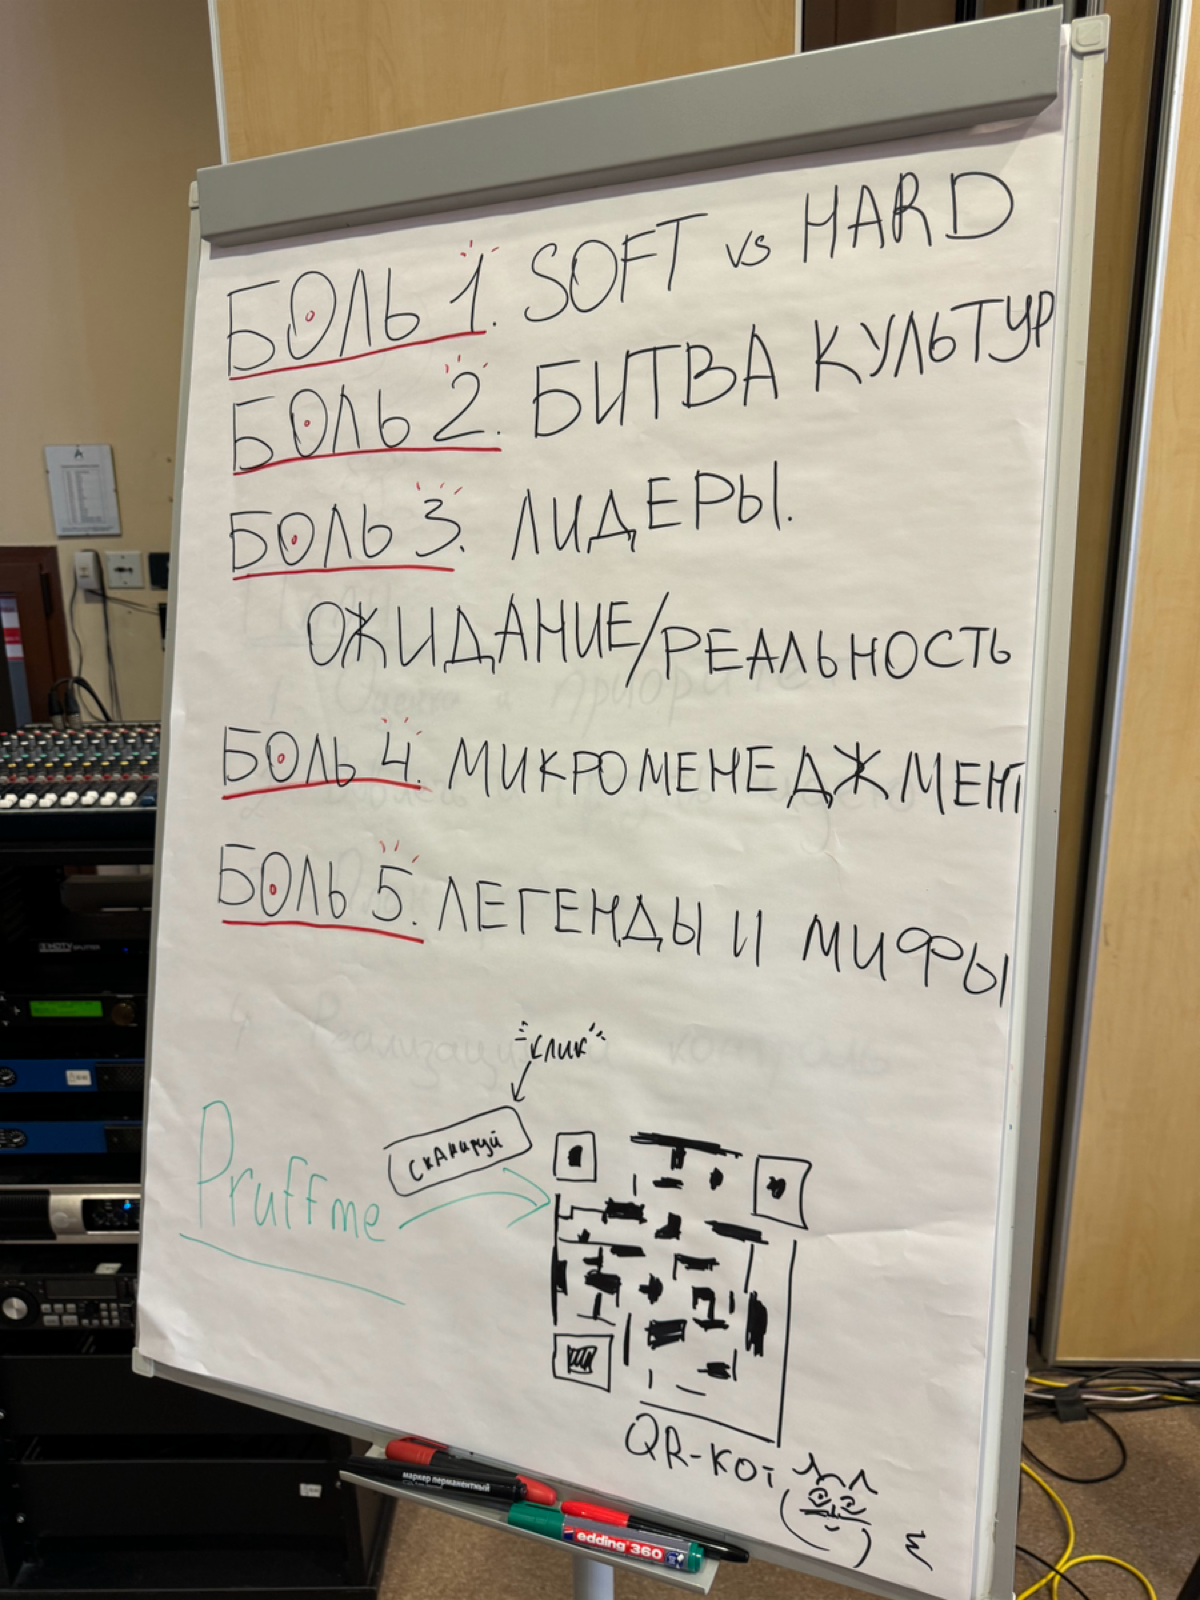 БОЛЬ 1. SOFT vs HARD
БОЛЬ 2. БИТВА КУЛЬТУР
БОЛЬ 3. ЛИДЕРЫ.
ОЖИДАНИЕ/РЕАЛЬНОСТЬ
БОЛЬ 4. МИКРОМЕНЕДЖМЕНТ
БОЛЬ 5. ЛЕГЕНДЫ И МИФЫ
"КЛИК"
СКАНИРУЙ
Pruffme
QR-КОТ
маркер перманентный
edding 360